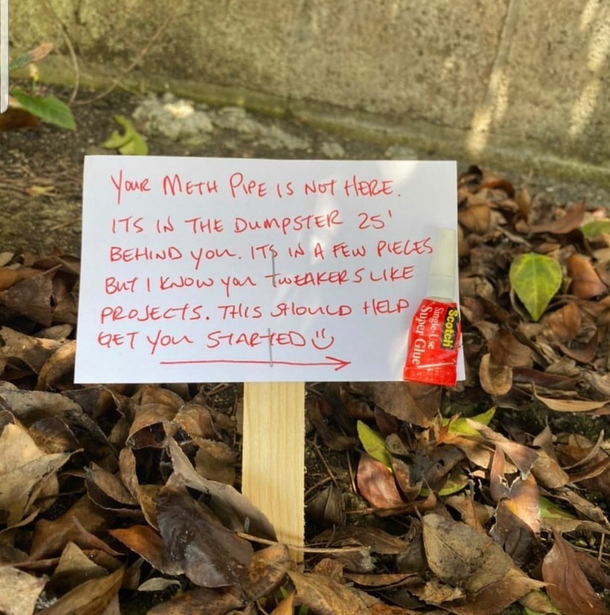 YOUR METH PIPE IS NOT HERE.
ITS IN THE DUMPSTER 25'
BEHIND YOU. ITS IN A FEW PIECES
BUT I KNOW YOU TWEAKERS LIKE
PROJECTS. THIS SHOULD HELP
GET YOU STARTED
Scotch
Single-Use
Super Glue